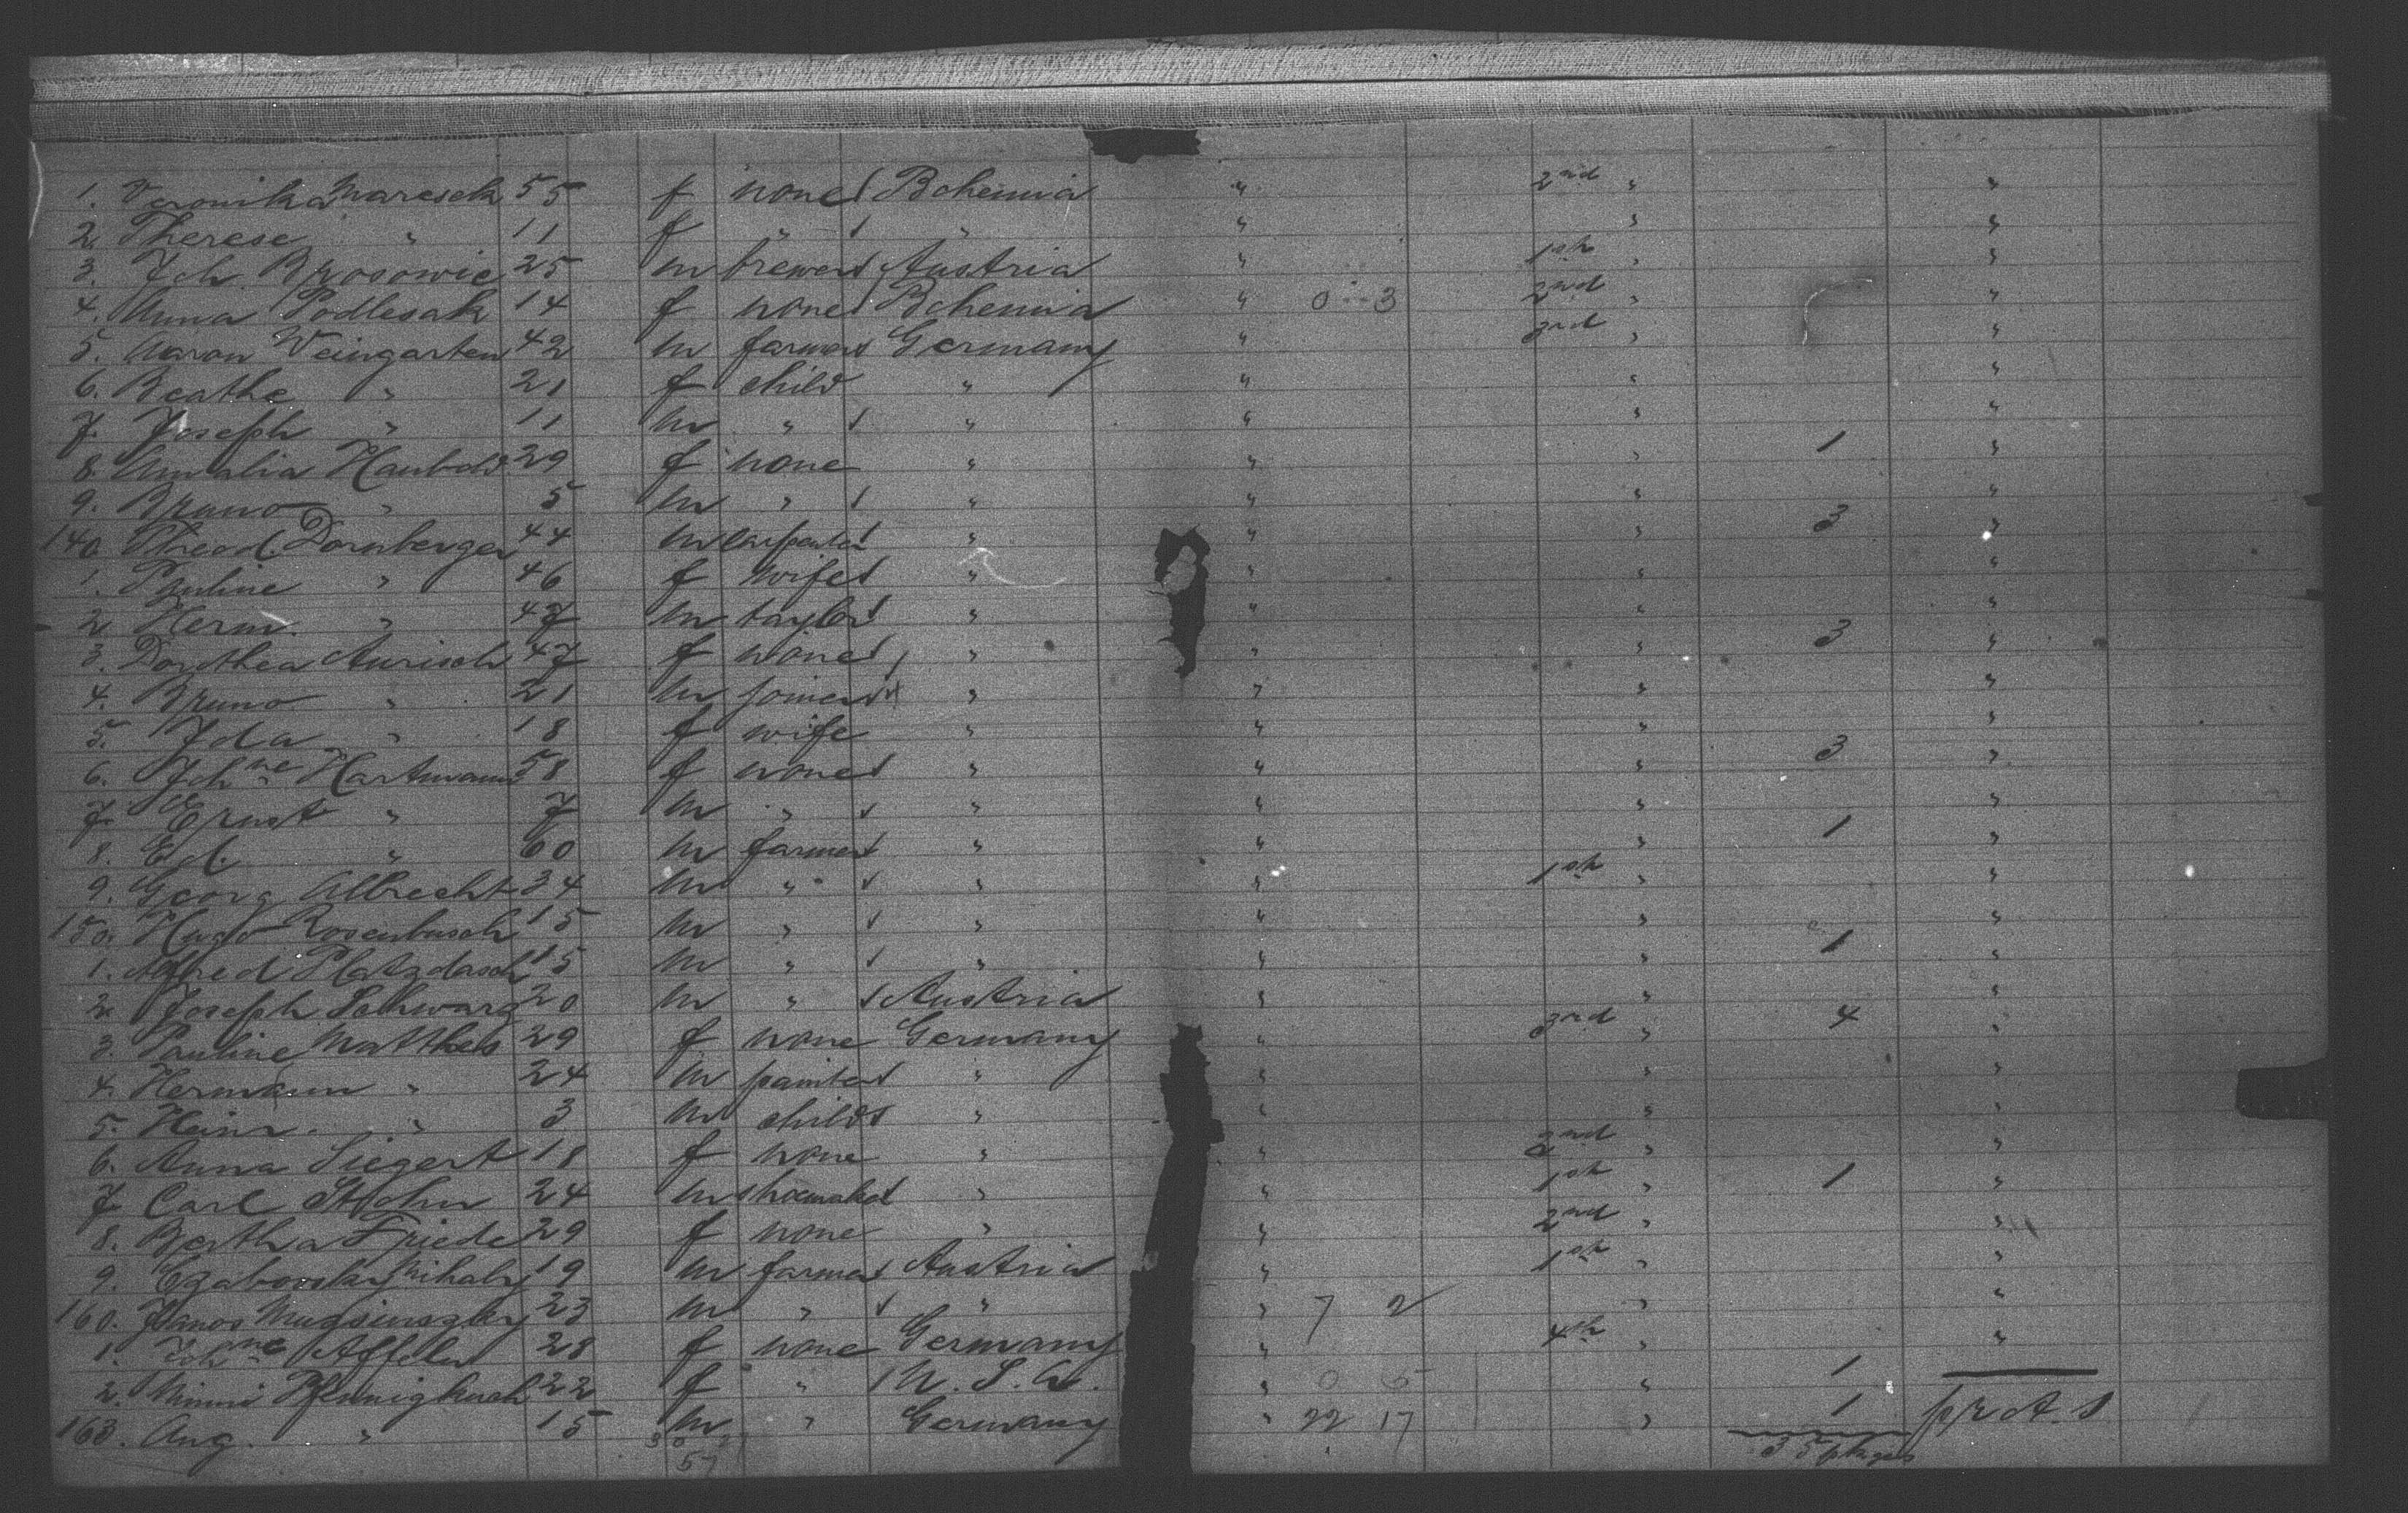 1. Veronika Maresch 55 f none Bohemia " 2nd " "
2. Therese " 11 f " " " " "
3. Joh. Brosowic 25 m brewer Austria " 1st " "
4. Anna Podlesak 14 f none Bohemia " 0 3 2nd " "
5. Aaron Weingarten 42 m farmer Germany " 3rd " "
6. Beathe " 21 f child " " " "
7. Joseph " 11 m " " " " "
8. Amalia Haubold 29 f none " " " 1 "
9. Bruno " 5 m " " " " "
140. Theod. Dornberger 44 m carpenter " " " 3 "
1. Pauline " 46 f wife " " " "
2. Herm. " 47 m taylor " " " "
3. Dorothea Aurisch 47 f none " " " 3 "
4. Bruno " 21 m joiner " " " "
5. Ida " 18 f wife " " " "
6. Johne Hartmann 58 f none " " " 3 "
7. Ernst " 7 m " " " " "
8. Ed. " 60 m farmer " " " 1 "
9. Georg Albrecht 34 m " " " 1st " "
150. Hugo Rosenbusch 15 m " " " " "
1. Alfred Platzdasch 15 m " " " " 1 "
2. Joseph Schwarz 20 m " Austria " " "
3. Pauline Matthes 29 f none Germany " 3rd " 4 "
4. Hermann " 24 m painter " " " "
5. Heinr. " 3 m child " " " "
6. Anna Siegert 18 f none " " 2nd " "
7. Carl Stohn 24 m shoemaker " " 1st " 1 "
8. Bertha Friede 29 f none " " 2nd " "
9. Czabovsky Mihaly 19 m farmer Austria " 1st " "
160. Janos 23 m " " " 7 2 " "
1. Johne 28 f none Germany " 4th " "
2. Minni Pfennigkuch 22 f " U. S. A. " 0 5 " 1
163. Aug. " 15 m " Germany " 22 17 " 1 pr A. S
57 35 pkges